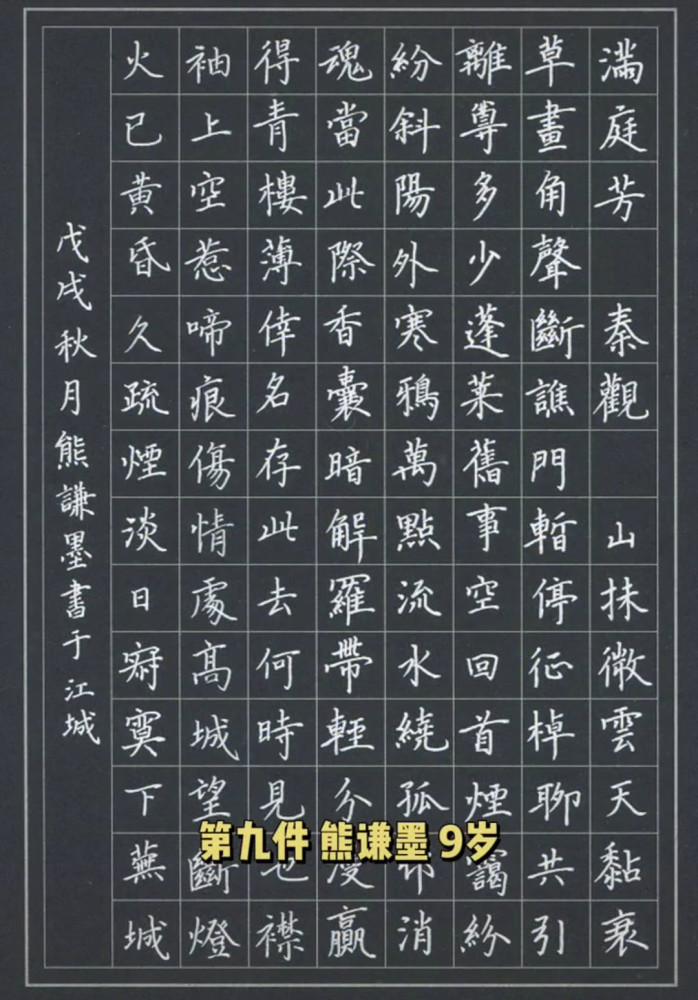 滿庭芳 秦觀 山抹微雲天黏衰
草畫角聲斷譙門暫停征棹聊共引
離尊多少蓬萊舊事空回首煙靄紛
紛斜陽外寒鴉萬點流水繞孤消
魂當此際香囊暗解羅帶輕分贏
得青樓薄倖名存此去何時見也襟
袖上空惹啼痕傷情處高城望斷燈
火已黃昏久疏煙淡日寂寞下蕪城
戊戌秋月熊謙墨書于江城
第九件 熊谦墨 9岁